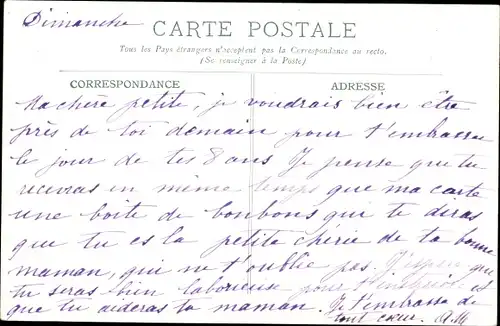 Dimanche
CARTE POSTALE
Tous les Pays étrangers n'acceptent pas la Correspondance au recto.
(Se renseigner à la Poste)
CORRESPONDANCE
ADRESSE
Ma chère petite, je voudrais bien être
près de toi demain pour t'embrasser
le jour de tes 8 ans Je pense que tu
recevras en même temps que ma carte
une boîte de bonbons qui te diras
que tu es la petite chérie de ta bonne
maman, qui ne t'oublie pas. J'espère que
tu seras bien laborieuse pour t'instruire et
que tu aideras ta maman. Je t'embrasse de
tout cœur.